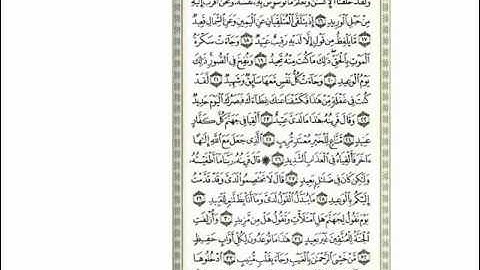 وَلَقَدْ خَلَقْنَا ٱلْإِنسَٰنَ وَنَعْلَمُ مَا تُوَسْوِسُ بِهِۦ نَفْسُهُۥ وَنَحْنُ أَقْرَبُ إِلَيْهِ
مِنْ حَبْلِ ٱلْوَرِيدِ ١٦ إِذْ يَتَلَقَّى ٱلْمُتَلَقِّيَانِ عَنِ ٱلْيَمِينِ وَعَنِ ٱلشِّمَالِ قَعِيدٌ
١٧ مَّا يَلْفِظُ مِن قَوْلٍ إِلَّا لَدَيْهِ رَقِيبٌ عَتِيدٌ ١٨ وَجَآءَتْ سَكْرَةُ
ٱلْمَوْتِ بِٱلْحَقِّ ذَٰلِكَ مَا كُنتَ مِنْهُ تَحِيدُ ١٩ وَنُفِخَ فِي ٱلصُّورِ ذَٰلِكَ
يَوْمُ ٱلْوَعِيدِ ٢٠ وَجَآءَتْ كُلُّ نَفْسٍ مَّعَهَا سَآئِقٌ وَشَهِيدٌ ٢١ لَّقَدْ
كُنتَ فِي غَفْلَةٍ مِّنْ هَٰذَا فَكَشَفْنَا عَنكَ غِطَآءَكَ فَبَصَرُكَ ٱلْيَوْمَ حَدِيدٌ
٢٢ وَقَالَ قَرِينُهُۥ هَٰذَا مَا لَدَيَّ عَتِيدٌ ٢٣ أَلْقِيَا فِي جَهَنَّمَ كُلَّ كَفَّارٍ
عَنِيدٍ ٢٤ مَّنَّاعٍ لِّلْخَيْرِ مُعْتَدٍ مُّرِيبٍ ٢٥ ٱلَّذِي جَعَلَ مَعَ ٱللَّهِ إِلَٰهًا
ءَاخَرَ فَأَلْقِيَاهُ فِي ٱلْعَذَابِ ٱلشَّدِيدِ ٢٦ ۞ قَالَ قَرِينُهُۥ رَبَّنَا مَآ أَطْغَيْتُهُۥ
وَلَٰكِن كَانَ فِي ضَلَٰلٍۭ بَعِيدٍ ٢٧ قَالَ لَا تَخْتَصِمُوا۟ لَدَيَّ وَقَدْ قَدَّمْتُ
إِلَيْكُم بِٱلْوَعِيدِ ٢٨ مَا يُبَدَّلُ ٱلْقَوْلُ لَدَيَّ وَمَآ أَنَا۠ بِظَلَّٰمٍ لِّلْعَبِيدِ ٢٩
يَوْمَ نَقُولُ لِجَهَنَّمَ هَلِ ٱمْتَلَأْتِ وَتَقُولُ هَلْ مِن مَّزِيدٍ ٣٠ وَأُزْلِفَتِ
ٱلْجَنَّةُ لِلْمُتَّقِينَ غَيْرَ بَعِيدٍ ٣١ هَٰذَا مَا تُوعَدُونَ لِكُلِّ أَوَّابٍ حَفِيظٍ
٣٢ مَّنْ خَشِيَ ٱلرَّحْمَٰنَ بِٱلْغَيْبِ وَجَآءَ بِقَلْبٍ مُّنِيبٍ ٣٣ ٱدْخُلُوهَا